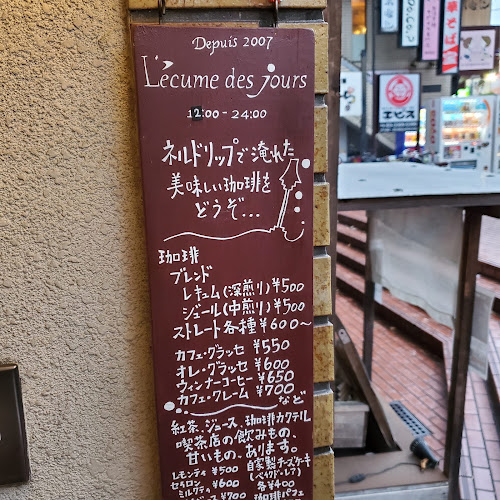 Depuis 2007
L'écume des jours
12:00 - 24:00
ネルドリップで淹れた
美味しい珈琲を
どうぞ...
珈琲
ブレンド
レキュム(深煎り)¥500
ジュール(中煎り)¥500
ストレート各種¥600〜
カフェ・グラッセ ¥550
オレ・グラッセ ¥600
ウィンナーコーヒー ¥650
カフェ・クレーム ¥700
など
紅茶、ジュース、珈琲カクテル
喫茶店の飲みもの、
甘いもの、あります。
レモンティ ¥500
セイロン ¥600
ミルクティ
¥700
自家製チーズケーキ
(ベイクド・レア)
各¥400
珈琲パフェ
エビス